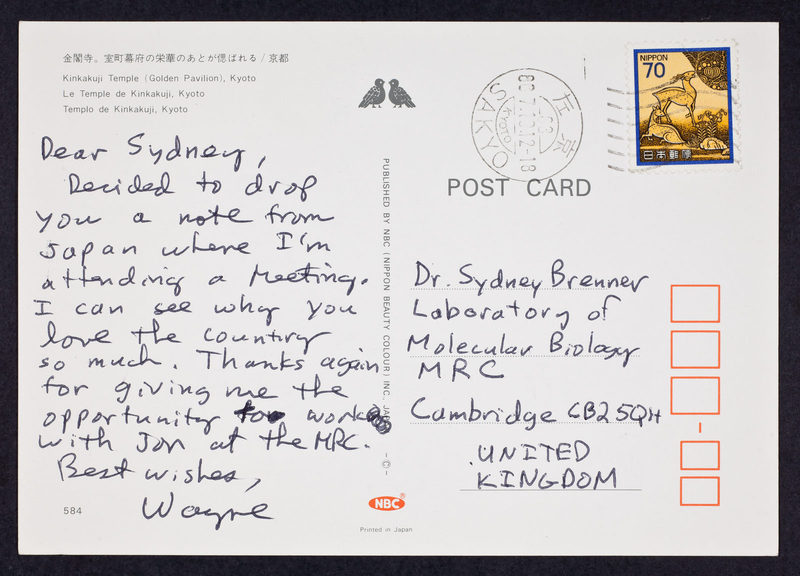 金閣寺。室町幕府の栄華のあとが偲ばれる / 京都
Kinkakuji Temple (Golden Pavilion), Kyoto
Le Temple de Kinkakuji, Kyoto
Templo de Kinkakuji, Kyoto
Dear Sydney,
Decided to drop
you a note from
Japan where I'm
attending a Meeting.
I can see why you
love the country
so much. Thanks again
for giving me the
opportunity to work
with Jon at the MRC.
Best wishes,
Wayne
584
PUBLISHED BY NBC (NIPPON BEAUTY COLOUR) INC.
-©-
NBC®
Printed in Japan
左京
12-18
KYOTO
SAKYO
NIPPON
70
日本郵便
POST CARD
Dr. Sydney Brenner
Laboratory of
Molecular Biology
MRC
Cambridge CB2 5QH
UNITED
KINGDOM